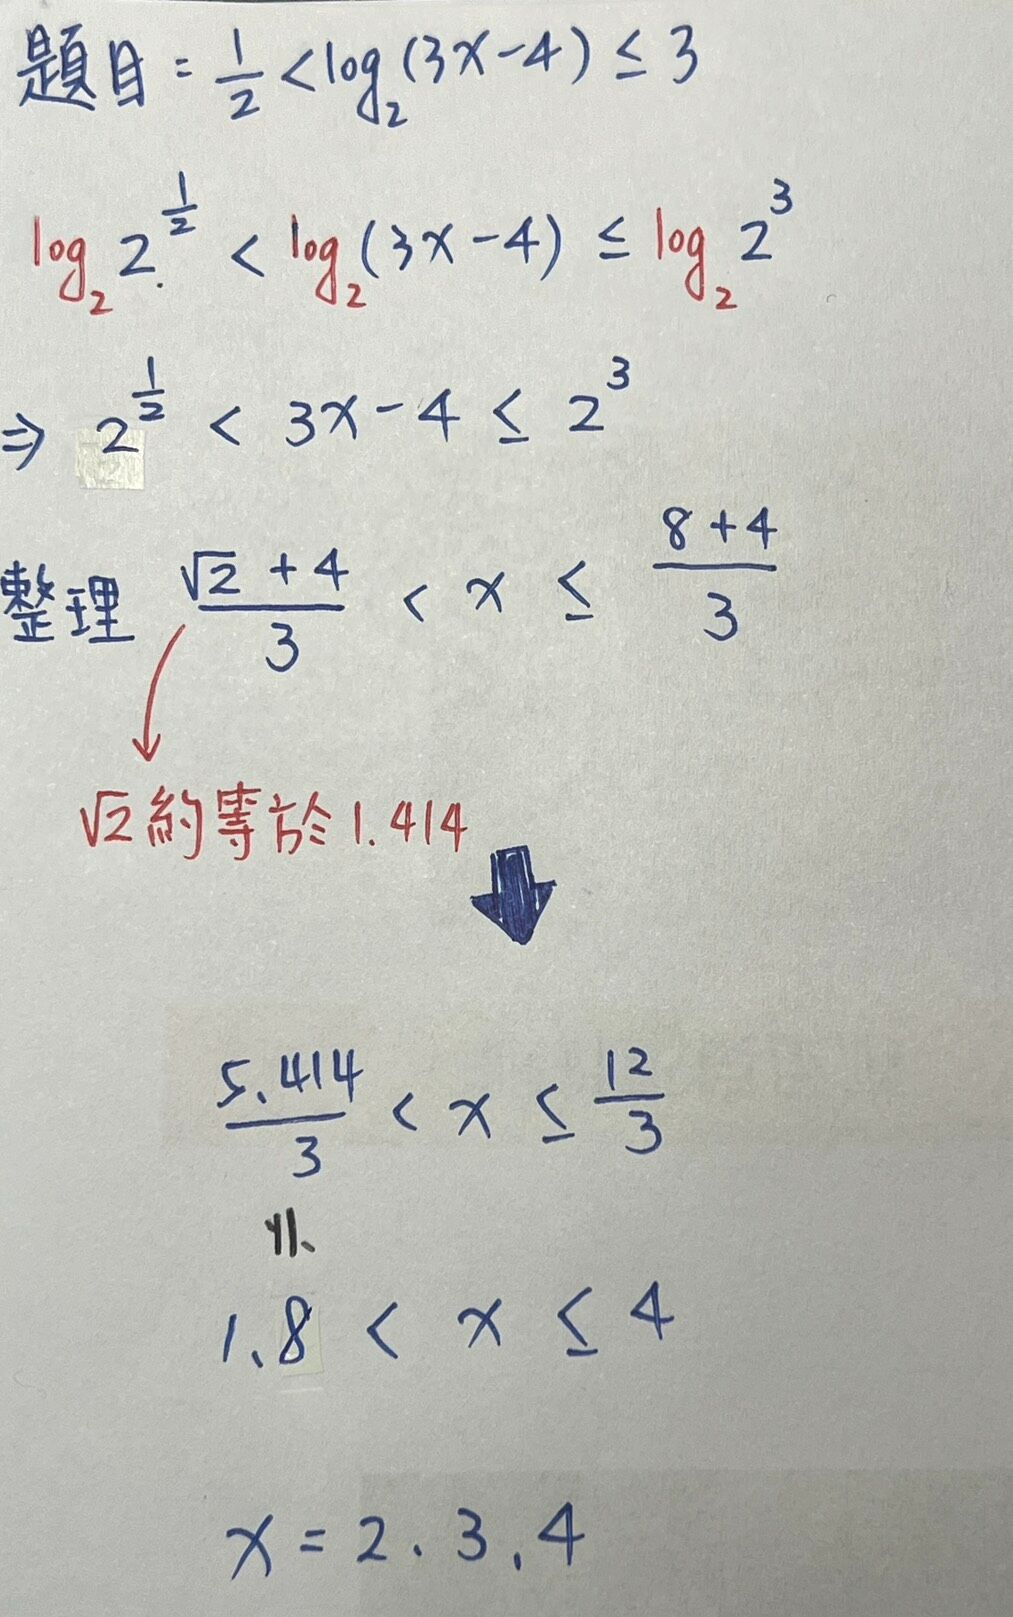 題目 = 1/2 < log₂(3x-4) ≤ 3
log₂ 2^(1/2) < log₂(3x-4) ≤ log₂ 2³
⇒ 2^(1/2) < 3x-4 ≤ 2³
整理 (√2+4)/3 < x ≤ (8+4)/3
√2約等於1.414
5.414/3 < x ≤ 12/3
1.8 < x ≤ 4
x = 2、3、4